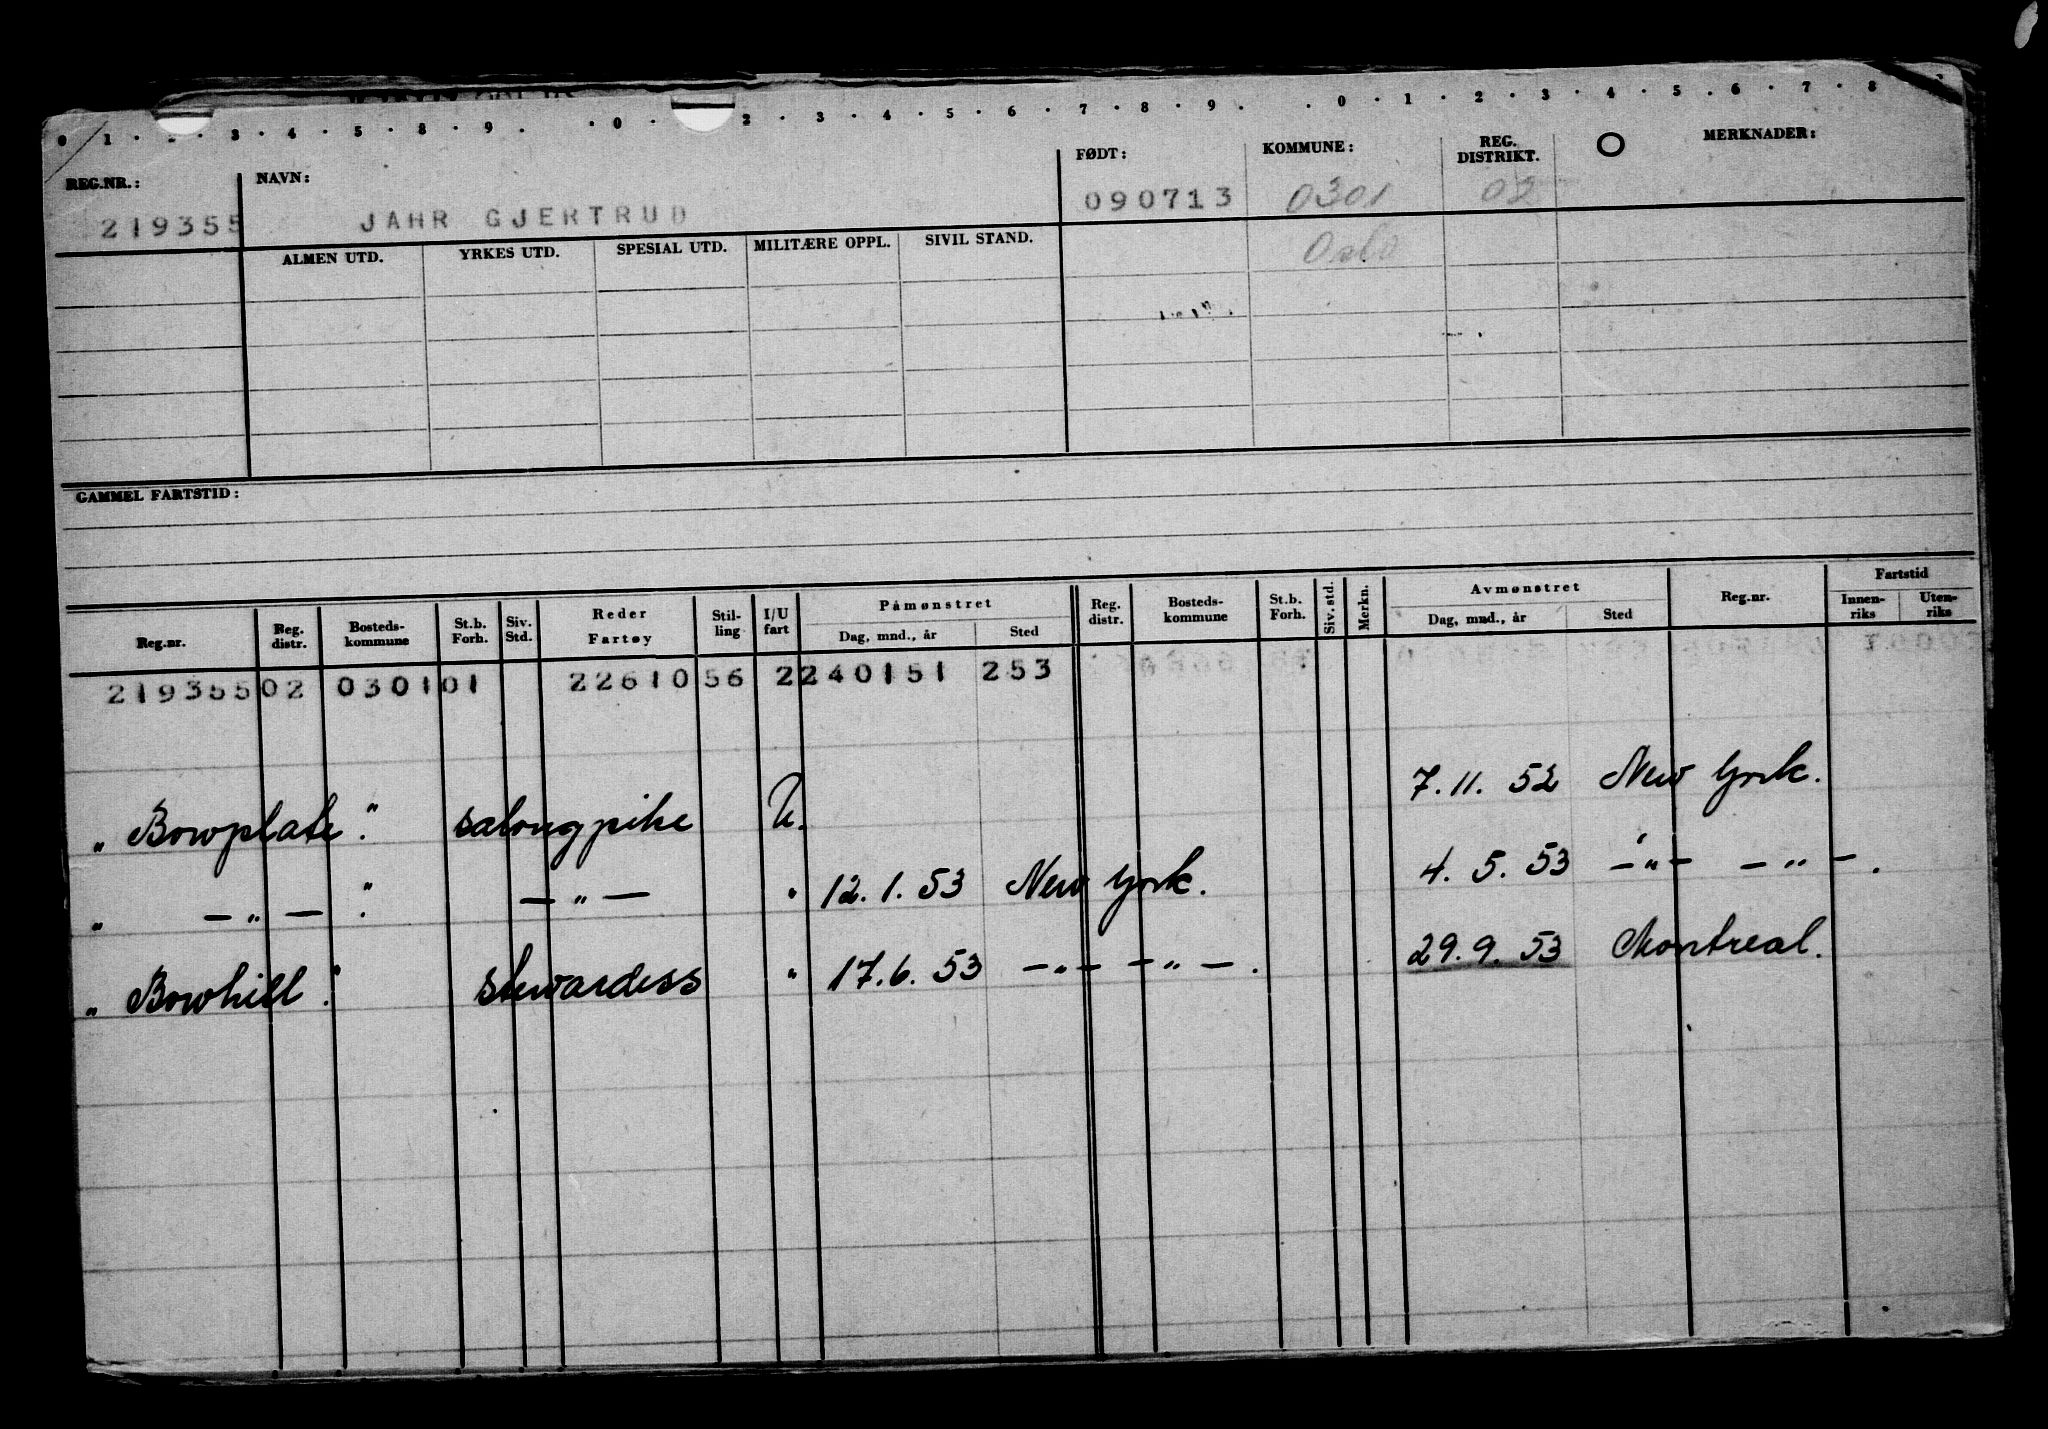 0 1 . . 3 . 4 . 5 . 8 . 9 . . 0 . 2 . 3 . 4 . 5 . 6 . 7 . 8 . 9 . . 0 . 1 . 2 . 3 . 4 . 5 . 6 . 7 . 8
REG.NR.: NAVN: FØDT: KOMMUNE: REG. DISTRIKT. O MERKNADER:
219355 JAHR GJERTRUD 090713 0301 02
ALMEN UTD. YRKES UTD. SPESIAL UTD. MILITÆRE OPPL. SIVIL STAND. Oslo
GAMMEL FARTSTID:
Reg.nr. Reg. distr. Bosteds- kommune St.b. Forh. Siv. Std. Reder Fartøy Stil- ling I/U fart Påmønstret Dag, mnd., år Sted Reg. distr. Bosteds- kommune St.b. Forh. Siv. std. Merkn. Avmønstret Dag, mnd., år Sted Reg.nr. Fartstid Innen- riks Uten- riks
219355 02 0301 01 22610 56 2 240151 253
„ Bowplate". salongpike U. 7.11.52 New York.
„ —"— ". —"— " 12.1.53 New York. 4.5.53 —"— —"—.
„ Bowhill". stewardess " 17.6.53 —"— —"—. 29.9.53 Montreal.